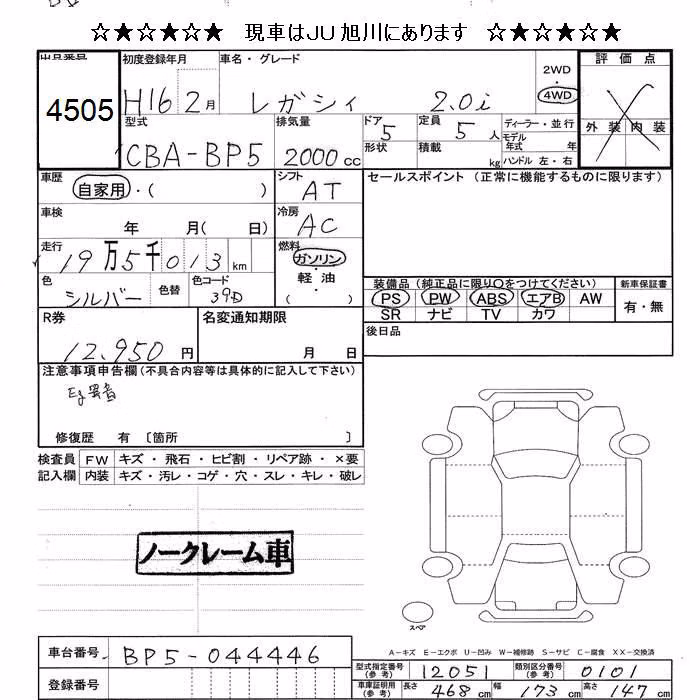 ☆★☆★☆★ 現車はJU旭川にあります ☆★☆★☆★
出品番号 初度登録年月 車名・グレード 評価点
4505 H16 2月 レガシィ 2.0i 2WD・4WD
外装 内装
型式 排気量 ドア 定員 ディーラー・並行
CBA-BP5 2000cc 5 5人 モデル年式 年
形状 積載 kg ハンドル 左・右
車歴 シフト セールスポイント (正常に機能するものに限ります)
自家用・( ) AT
車検 冷房
年 月( 日) AC
走行 燃料
19万5千013km ガソリン・軽油・( )
色 色替 色コード
シルバー 39D
装備品 (純正品に限り○をつけてください) 新車保証書
PS PW ABS エアB AW 有・無
SR ナビ TV カワ
R券 名変通知期限 後日品
12,950円 月 日
注意事項申告欄(不具合内容等は具体的に記入して下さい)
Eg異音
修復歴 有 〔箇所 〕
検査員 FW キズ・飛石・ヒビ割・リペア跡・×要
記入欄 内装 キズ・汚レ・コゲ・穴・スレ・キレ・破レ
ノークレーム車
スペア
A-キズ E-エクボ U-凹み W-補修跡 S-サビ C-腐食 XX-交換済
車台番号 BP5-044446
登録番号
型式指定番号(参考) 12051 類別区分番号(参考) 0101
車庫証明用(参考) 長さ 468cm 幅 173cm 高さ 147cm